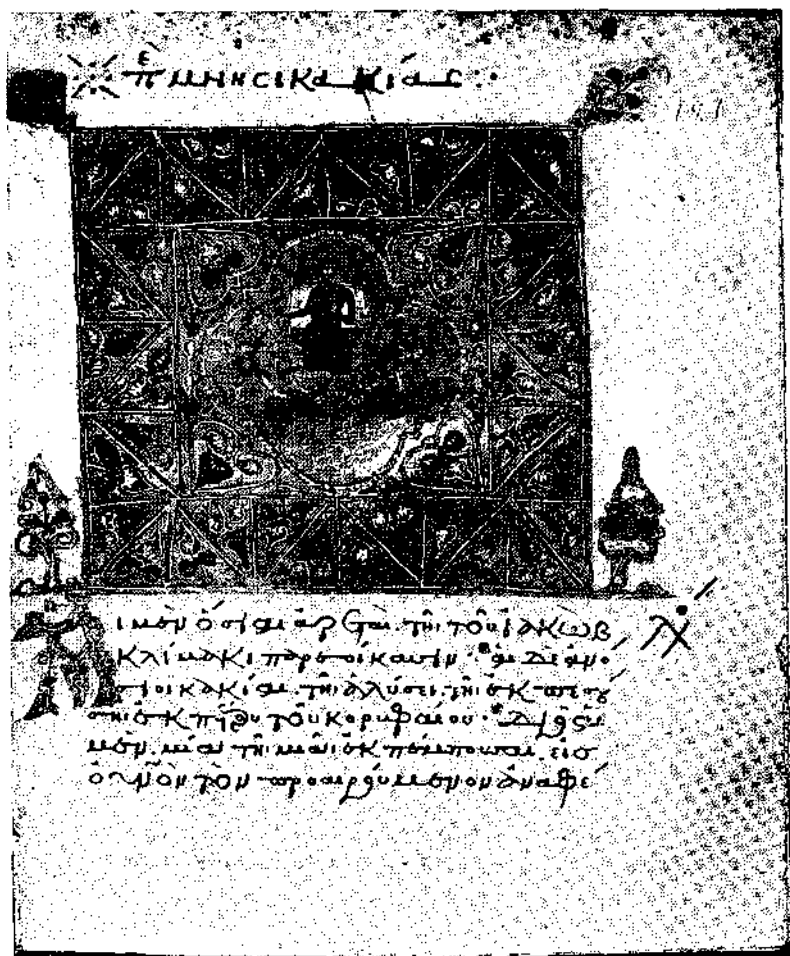 πε μνησικακίας :·
αι μὲν ὅσιαι ἀρεταὶ τῆι τοῦ ἰακὼβ
κλίμακι παρεοίκασιν· αἱ δὲ ἀνό
σιοι κακίαι, τῆι ἁλύσει τῆι ἐκπεσού
σηι ἐκ πέτρου τοῦ κορυφαίου· διὸ αἱ
μὲν, μία τῆι μιᾶι ἐκπέμπουσαι, εἰσ
οὐνὸν τὸν προαιρούμενον ἀναφέ